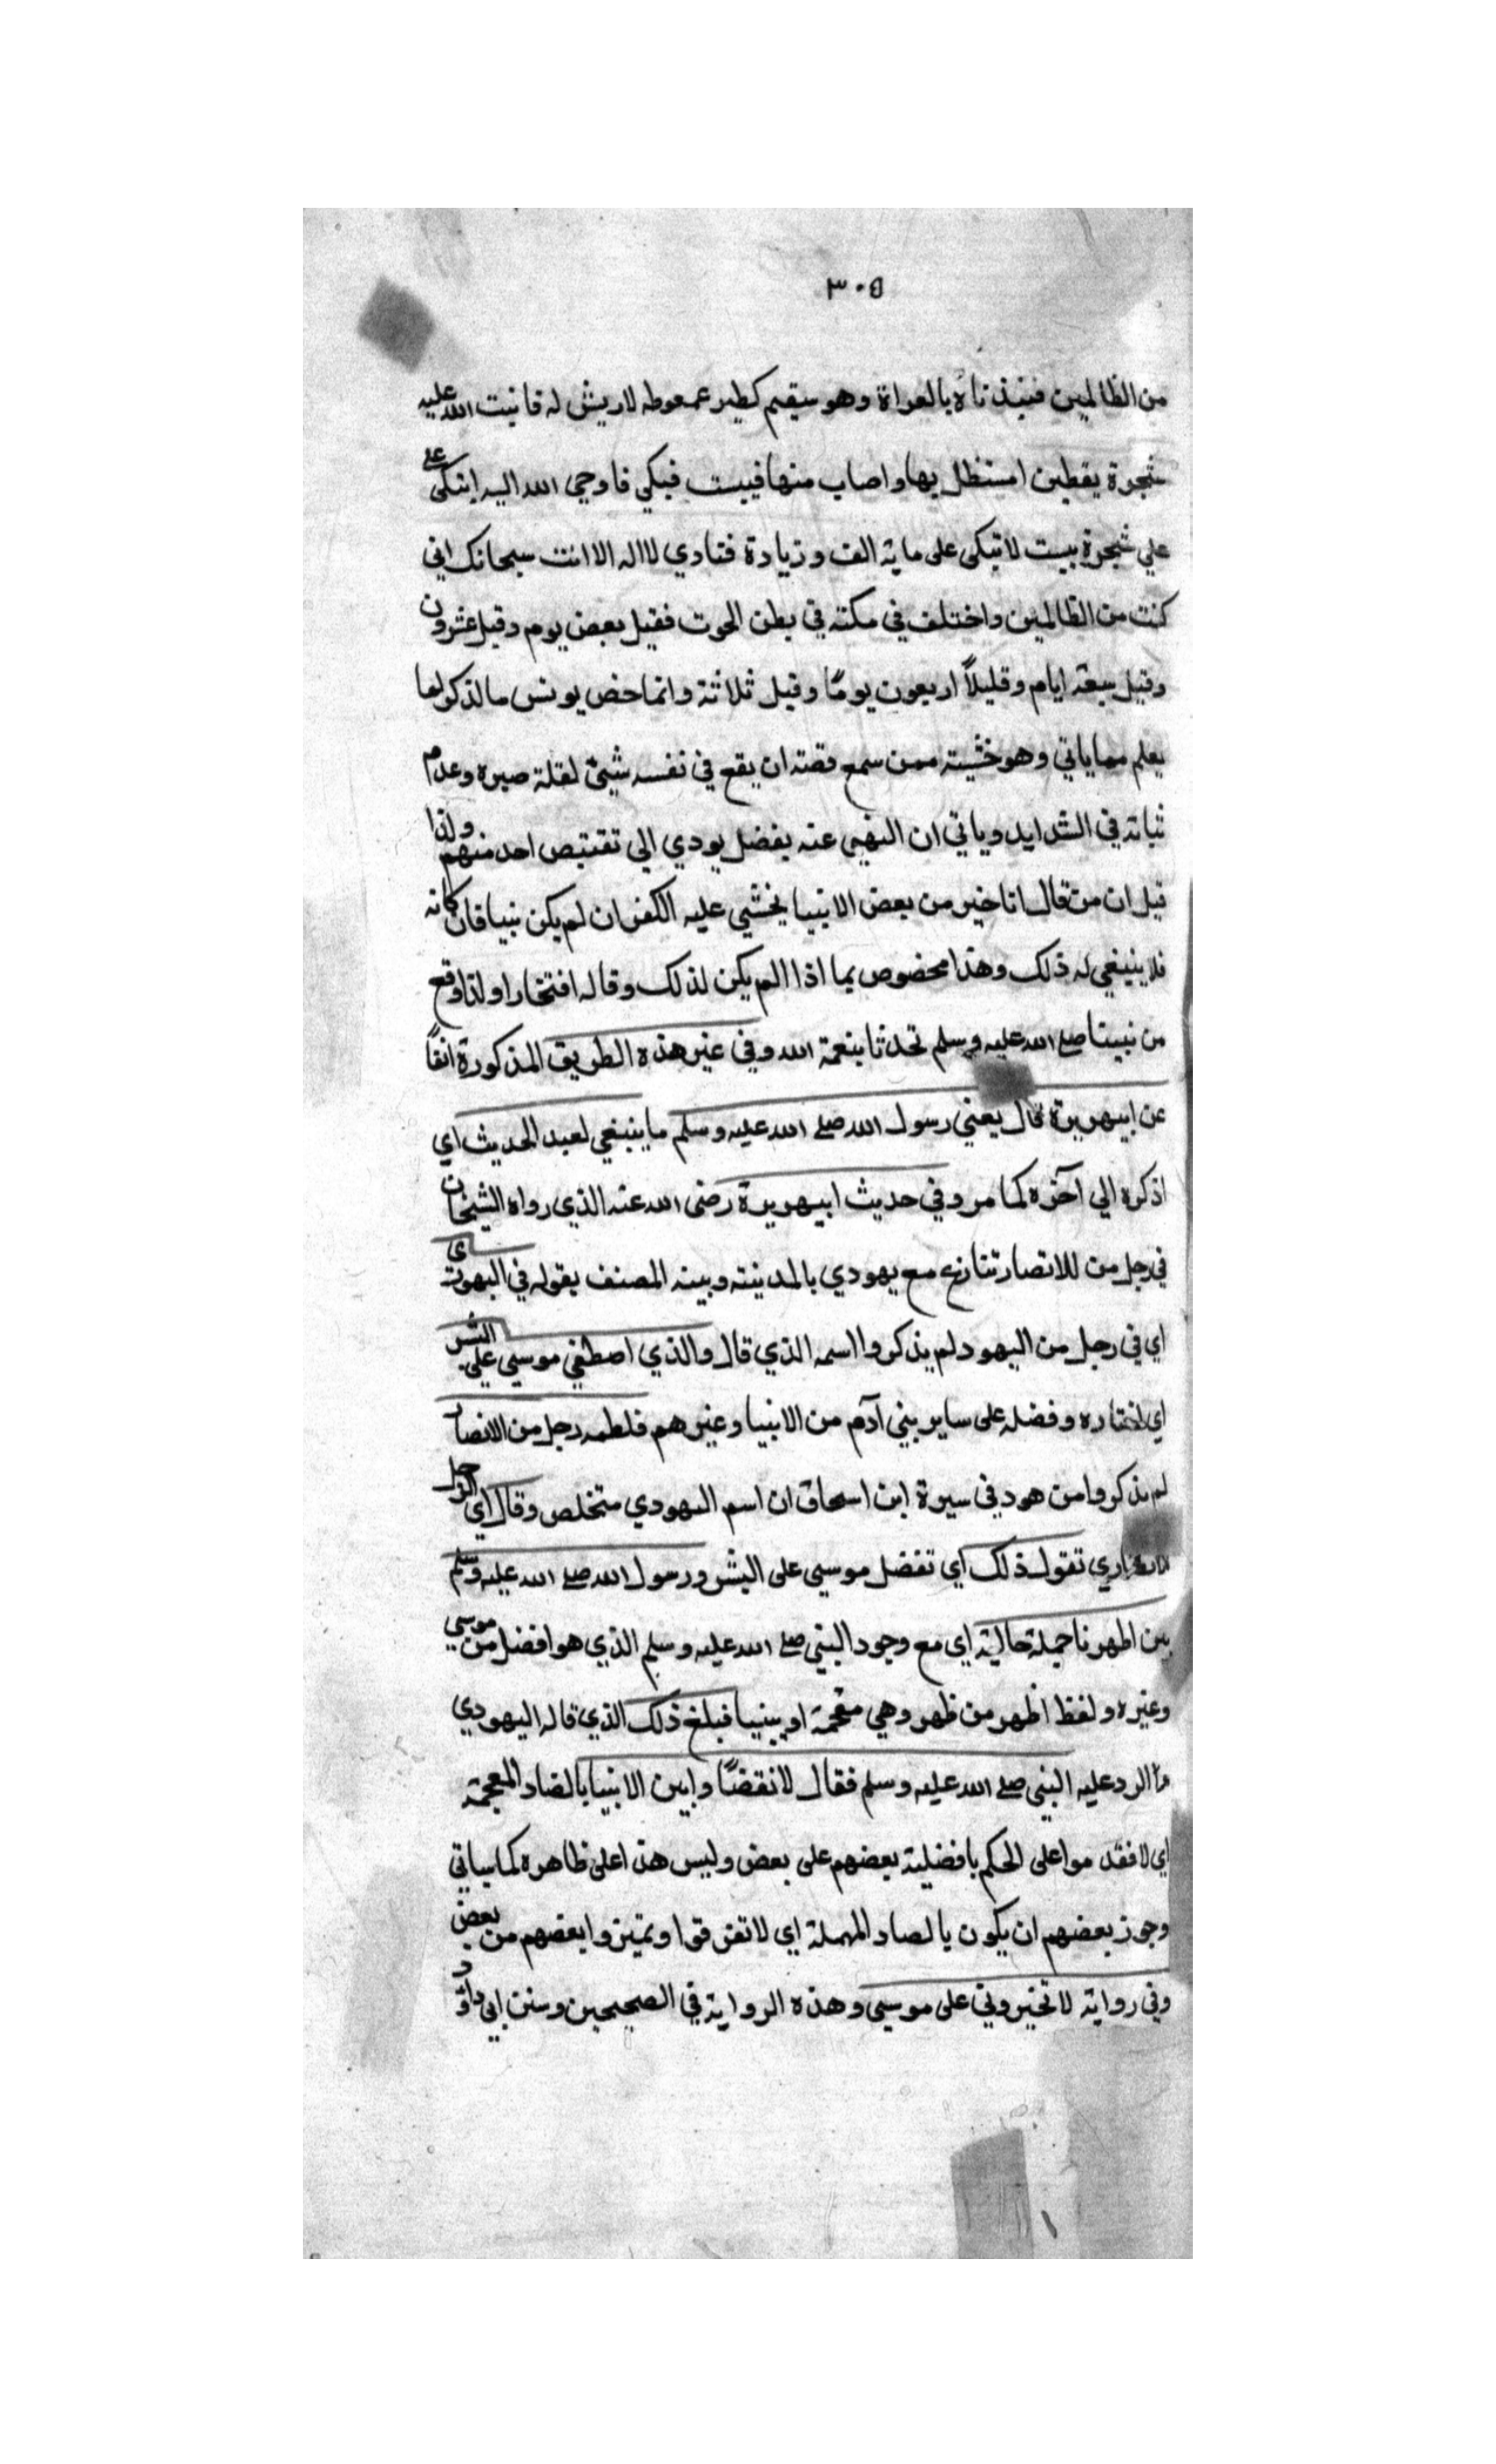 ٣٠٥
من الظالمين فنبذناه بالعراة وهو سقيم كطير ممعوطه لاريش له فانبت الله عليه
شجرة يقطين استظل بها واصاب منها فيبست فبكي فاوحي الله اليه اتبكى على
علي شجرة يبست لا تبكى على ماية الف وزيادة فنادي لا اله الا انت سبحانك اني
كنت من الظالمين واختلف في مكثه في بطن الحوت فقيل بعض يوم وقيل عشرون
وقيل سبعة ايام وقليلاً اربعون يومًا وقيل ثلاثة وانما خص يونس مالذكر لما
يعلم مما ياتي وهو خشيته ممن سمع قصته ان يقع في نفسه شيئ لقلة صبره وعدم
ثباته في الشدايد وياتي ان النهي عنه يفضل يودي الي تنقيص احد منهم ولذا
قيل ان من قال انا خير من بعض الانبيا يخشي عليه الكفر ان لم يكن نبيا فان كانه
فلا ينبغي له ذلك وهذا مخصوص بما اذا الم يكن لذلك وقاله افتخارا ولذا وقع
من نبينا صلى الله عليه وسلم تحدثا بنعمة الله وفي غير هذه الطريق المذكورة انفاً
عن ابيهريرة قال يعني رسول الله صلى الله عليه وسلم ما ينبغي لعبد الحديث اي
اذكره الي آخره كما مر وفي حديث ابيهريرة رضى الله عنه الذي رواه الشيخان
في رجل من للانصار تنازع مع يهودي بالمدينة وبينه المصنف بقوله في اليهودي
اي في رجل من اليهود لم يذكروا اسمه الذي قال والذي اصطفي موسي علي البشر
اي اختاره وفضله على ساير بيني آدم من الانبيا وغيرهم فلطمه رجل من الانصار
لم يذكروا من هو وفي سيرة ابن اسحاق ان اسم اليهودي متخلص وقال اي الرجل
الانصاري تقول ذلك اي تفضل موسي على البشر ورسول الله صلى الله عليه وسلم
بين اظهرنا جملة حالية اي مع وجود النبي صلى الله عليه وسلم الذي هو افضل من موسي
وغيره ولفظ اظهر من ظهر وهي مقحمة او بينيا فبلغ ذلك الذي قاله اليهودي
الرد عليه النبي صلى الله عليه وسلم فقال لا نقضًا وابين الانبيا بالضاد المعجمة
اي لا فقد موا على الحكم بافضلية بعضهم على بعض وليس هذا على ظاهره كما سياتي
وجوز بعضهم ان يكون بالصاد المهملة اي لا تفرقوا وتميزوا بعضهم من بعض
وفي رواية لا تخيروني على موسي وهذه الرواية في الصحيحين وسنن ابي داود